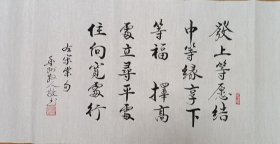 發上等愿结
中等緣享下
等福 擇高
處立尋平處
住向寬處行
左宗棠句